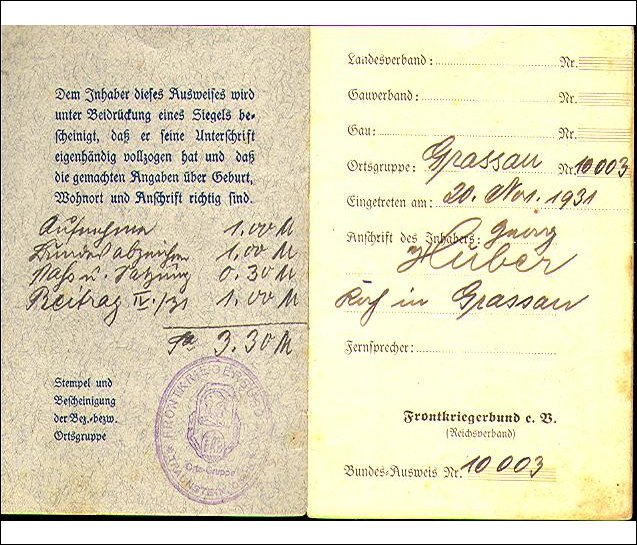 Dem Inhaber dieses Ausweises wird
unter Beidrückung eines Siegels be-
scheinigt, daß er seine Unterschrift
eigenhändig vollzogen hat und daß
die gemachten Angaben über Geburt,
Wohnort und Anschrift richtig sind.
Aufnahme 1.00 M
Bundesabzeichen 1.00 M
Pass u. Satzung 0.30 M
Beitrag IV./31 1.00 M
Sa 3.30 M
Stempel und
Bescheinigung
der Bez.-bezw.
Ortsgruppe
FRONTKRIEGERBUND
Orts-Gruppe
Landesverband: Nr.
Gauverband: Nr.
Gau: Nr.
Ortsgruppe: Grassau Nr. 10003
Eingetreten am: 20. Nov. 1931
Anschrift des Inhabers: Georg
Huber
in Grassau
Fernsprecher:
Frontkriegerbund e. V.
(Reichsverband)
Bundes-Ausweis Nr. 10003